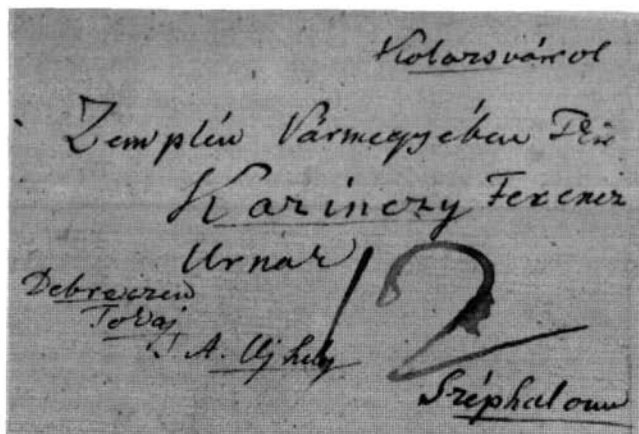 Kolozsvárrol
Zemplén Vármegyében
Kazinczy Ferencz
Urnak
12
Debreczen
Tokaj
S. A. Ujhely
Széphalom